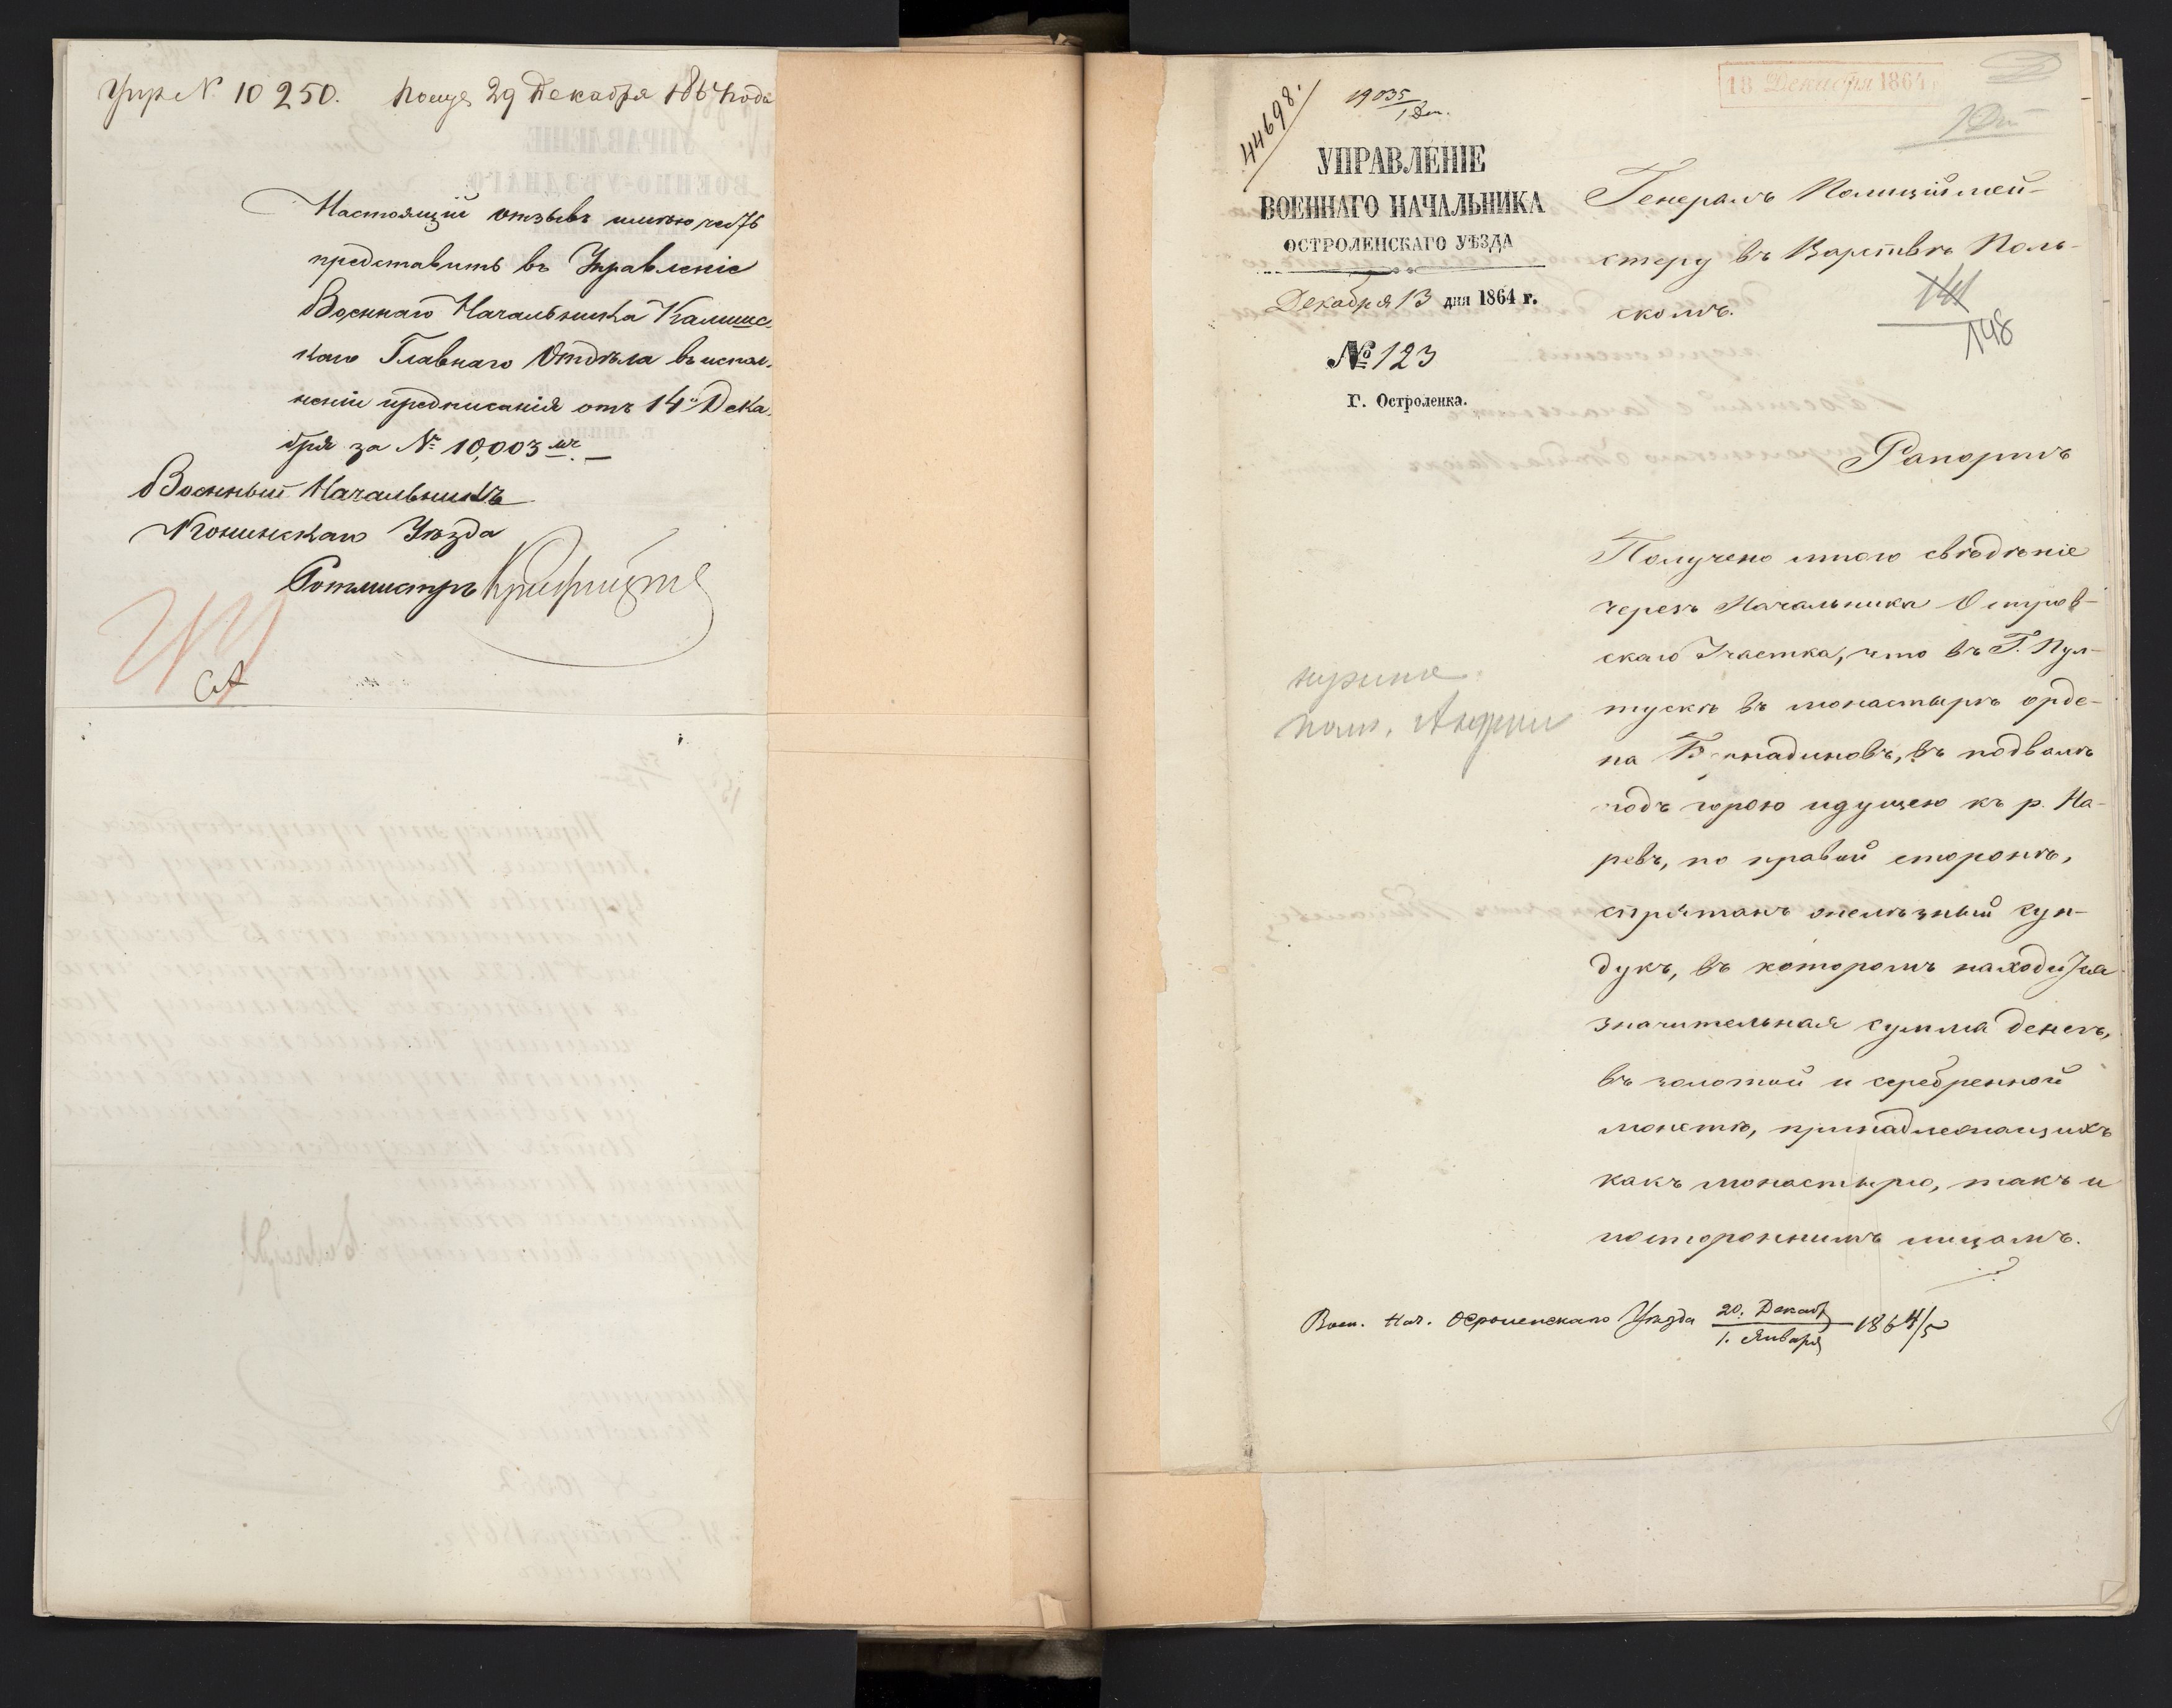 № 10250. 29 Декабря 1864 года
Настоящій отзывъ имѣю честь
представить въ Управленіе
Военнаго Начальника Калишс
каго Главнаго Отдѣла въ испол
неніи предписанія отъ 14 Дека
бря за № 10,003мъ. —
Военный Начальникъ
Конинскаго Уѣзда
Ротмистръ
44698.
19035
УПРАВЛЕНІЕ
ВОЕННАГО НАЧАЛЬНИКА
ОСТРОЛЕНСКАГО УѢЗДА
Декабря 13 дня 1864 г.
№ 123
Г. Остроленка.
18 Декабря 1864
Генералъ Полиціймей-
стеру въ Царствѣ Поль-
скомъ.
141
148
Рапортъ
Получено мною свѣдѣніе
черезъ Начальника Остров-
скаго Участка, что въ Г. Пул-
тускѣ въ монастырѣ орде-
на Бернадиновъ, въ подвалѣ
подъ горою идущею къ р. На-
ревъ, по правой сторонѣ,
спрятанъ желѣзный сун-
дукъ, въ которомъ находится
значительная сумма денегъ,
въ золотой и серебренной
монетѣ, принадлежащихъ
какъ монастырю, такъ и
постороннимъ лицамъ.
Воен. Нач. Остроленскаго Уѣзда 20. Декаб / 1. Января 1864/5